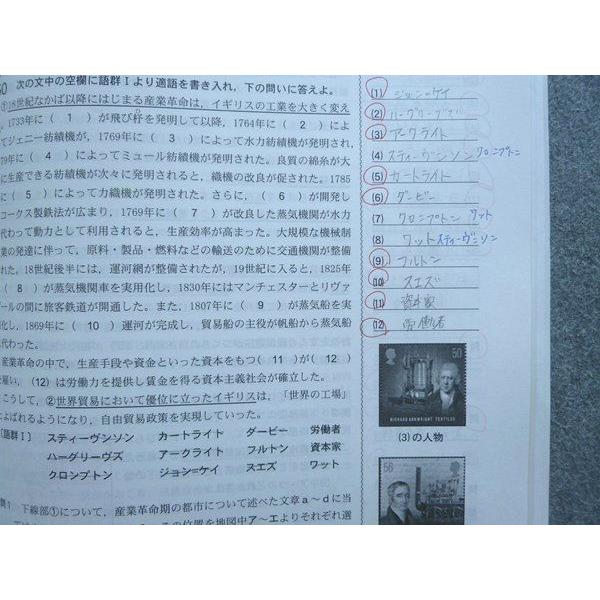 60 次の文中の空欄に語群Ⅰより適語を書き入れ，下の問いに答えよ。
①18世紀なかば以降にはじまる産業革命は，イギリスの工業を大きく変え
1733年に（ 1 ）が飛び杼を発明して以降，1764年に（ 2 ）によ
てジェニー紡績機が，1769年に（ 3 ）によって水力紡績機が発明され，
79年に（ 4 ）によってミュール紡績機が発明された。良質の綿糸が大
に生産できる紡績機が次々に発明されると，織機の改良が促された。1785
に（ 5 ）によって力織機が発明された。さらに，（ 6 ）が開発し
コークス製鉄法が広まり，1769年に（ 7 ）が改良した蒸気機関が水力
代わって動力として利用されると，生産効率が高まった。大規模な機械制
業の発達に伴って，原料・製品・燃料などの輸送のために交通機関が整備
れた。18世紀後半には，運河網が整備されたが，19世紀に入ると，1825年
（ 8 ）が蒸気機関車を実用化し，1830年にはマンチェスターとリヴァ
ールの間に旅客鉄道が開通した。また，1807年に（ 9 ）が蒸気船を実
化し，1869年に（ 10 ）運河が完成し，貿易船の主役が帆船から蒸気船
代わった。
産業革命の中で，生産手段や資金といった資本をもつ（ 11 ）が（ 12 ）
雇い，（12）は労働力を提供し賃金を得る資本主義社会が確立した。
こうして，②世界貿易において優位に立ったイギリスは，「世界の工場」
よばれるようになり，自由貿易政策を実現していった。
〔語群Ⅰ〕 スティーヴンソン カートライト ダービー 労働者
ハーグリーヴズ アークライト フルトン 資本家
クロンプトン ジョン=ケイ スエズ ワット
問1 下線部①について，産業革命期の都市について述べた文章a～dに当
の位置を地図中ア～エよりそれぞれ選
(1) ジョン=ケイ
(2) ハーグリーブズ
(3) アークライト
(4) スティーヴンソン クロンプトン
(5) カートライト
(6) ダービー
(7) クロンプトン ワット
(8) ワット スティーヴンソン
(9) フルトン
(10) スエズ
(11) 資本家
(12) 労働者
50
RICHARD ARKWRIGHT TEXTILES
(3)の人物